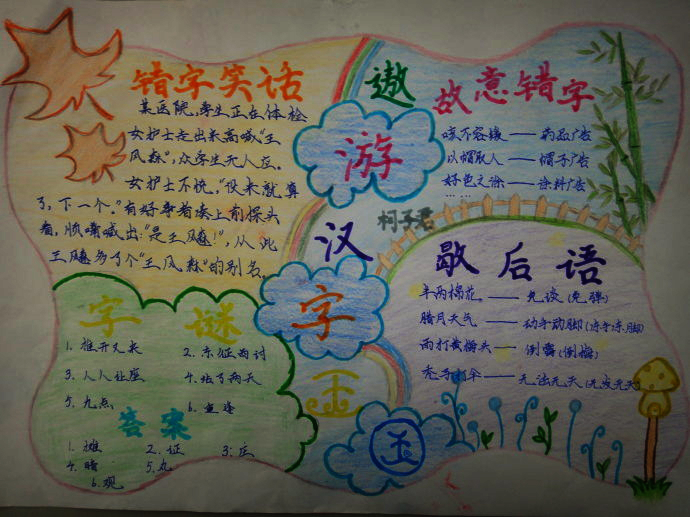 错字笑话
某医院,学生正在体检
女护士走出来高喊"王
风森",众学生无人应。
女护士不悦,"没来就算
了,下一个。"有好事者凑上前探头
看,顺嘴喊出:"是王飚!",从此
王飚多了个"王风森"的别名。
遨
游
汉
字
王
国
柯子君
故意错字
咳不容缓——药品广告
以帽取人——帽子广告
好色之涂——涂料广告
……
歇后语
半两棉花——免谈(免弹)
腊月天气——动手动脚(冻手冻脚)
雨打黄梅头——倒霉(倒梅)
秃子打伞——无法无天(无发无天)
字谜
1. 推开又来
2. 东征西讨
3. 人人让座
4. 站了两天
5. 九点
6. 重逢
答案
1. 摊
2. 证
3. 庄
4. 暗
5. 丸
6. 观